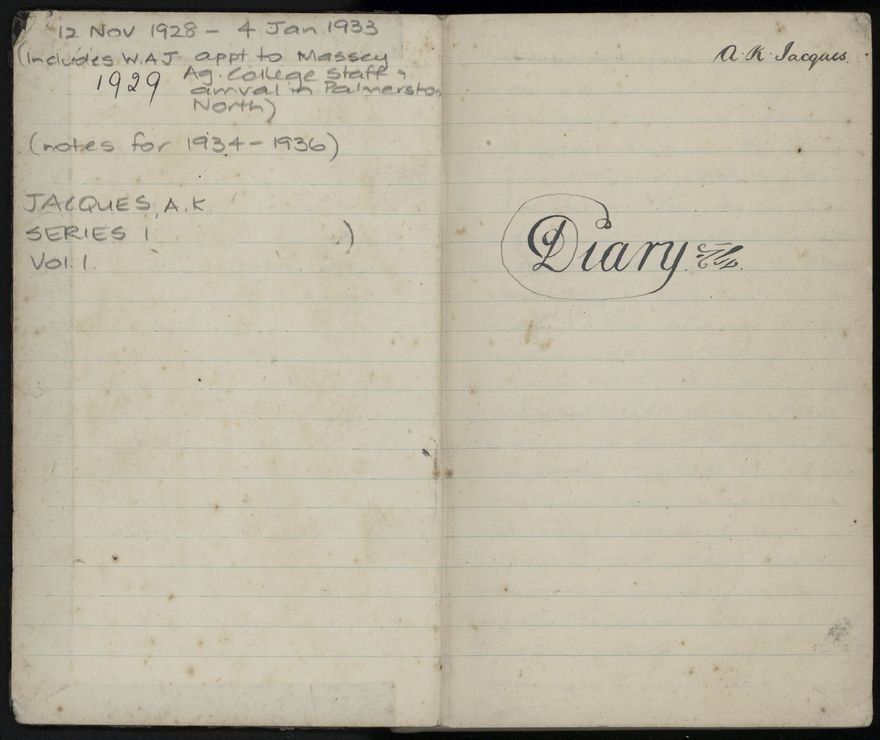 12 Nov 1928 - 4 Jan 1933
(includes W.A.J. appt to Massey
1929 Ag. College staff &
arrival in Palmerston
North)
(notes for 1934-1936)
JACQUES, A.K.
SERIES 1 )
Vol. 1.
A. K. Jacques.
Diary